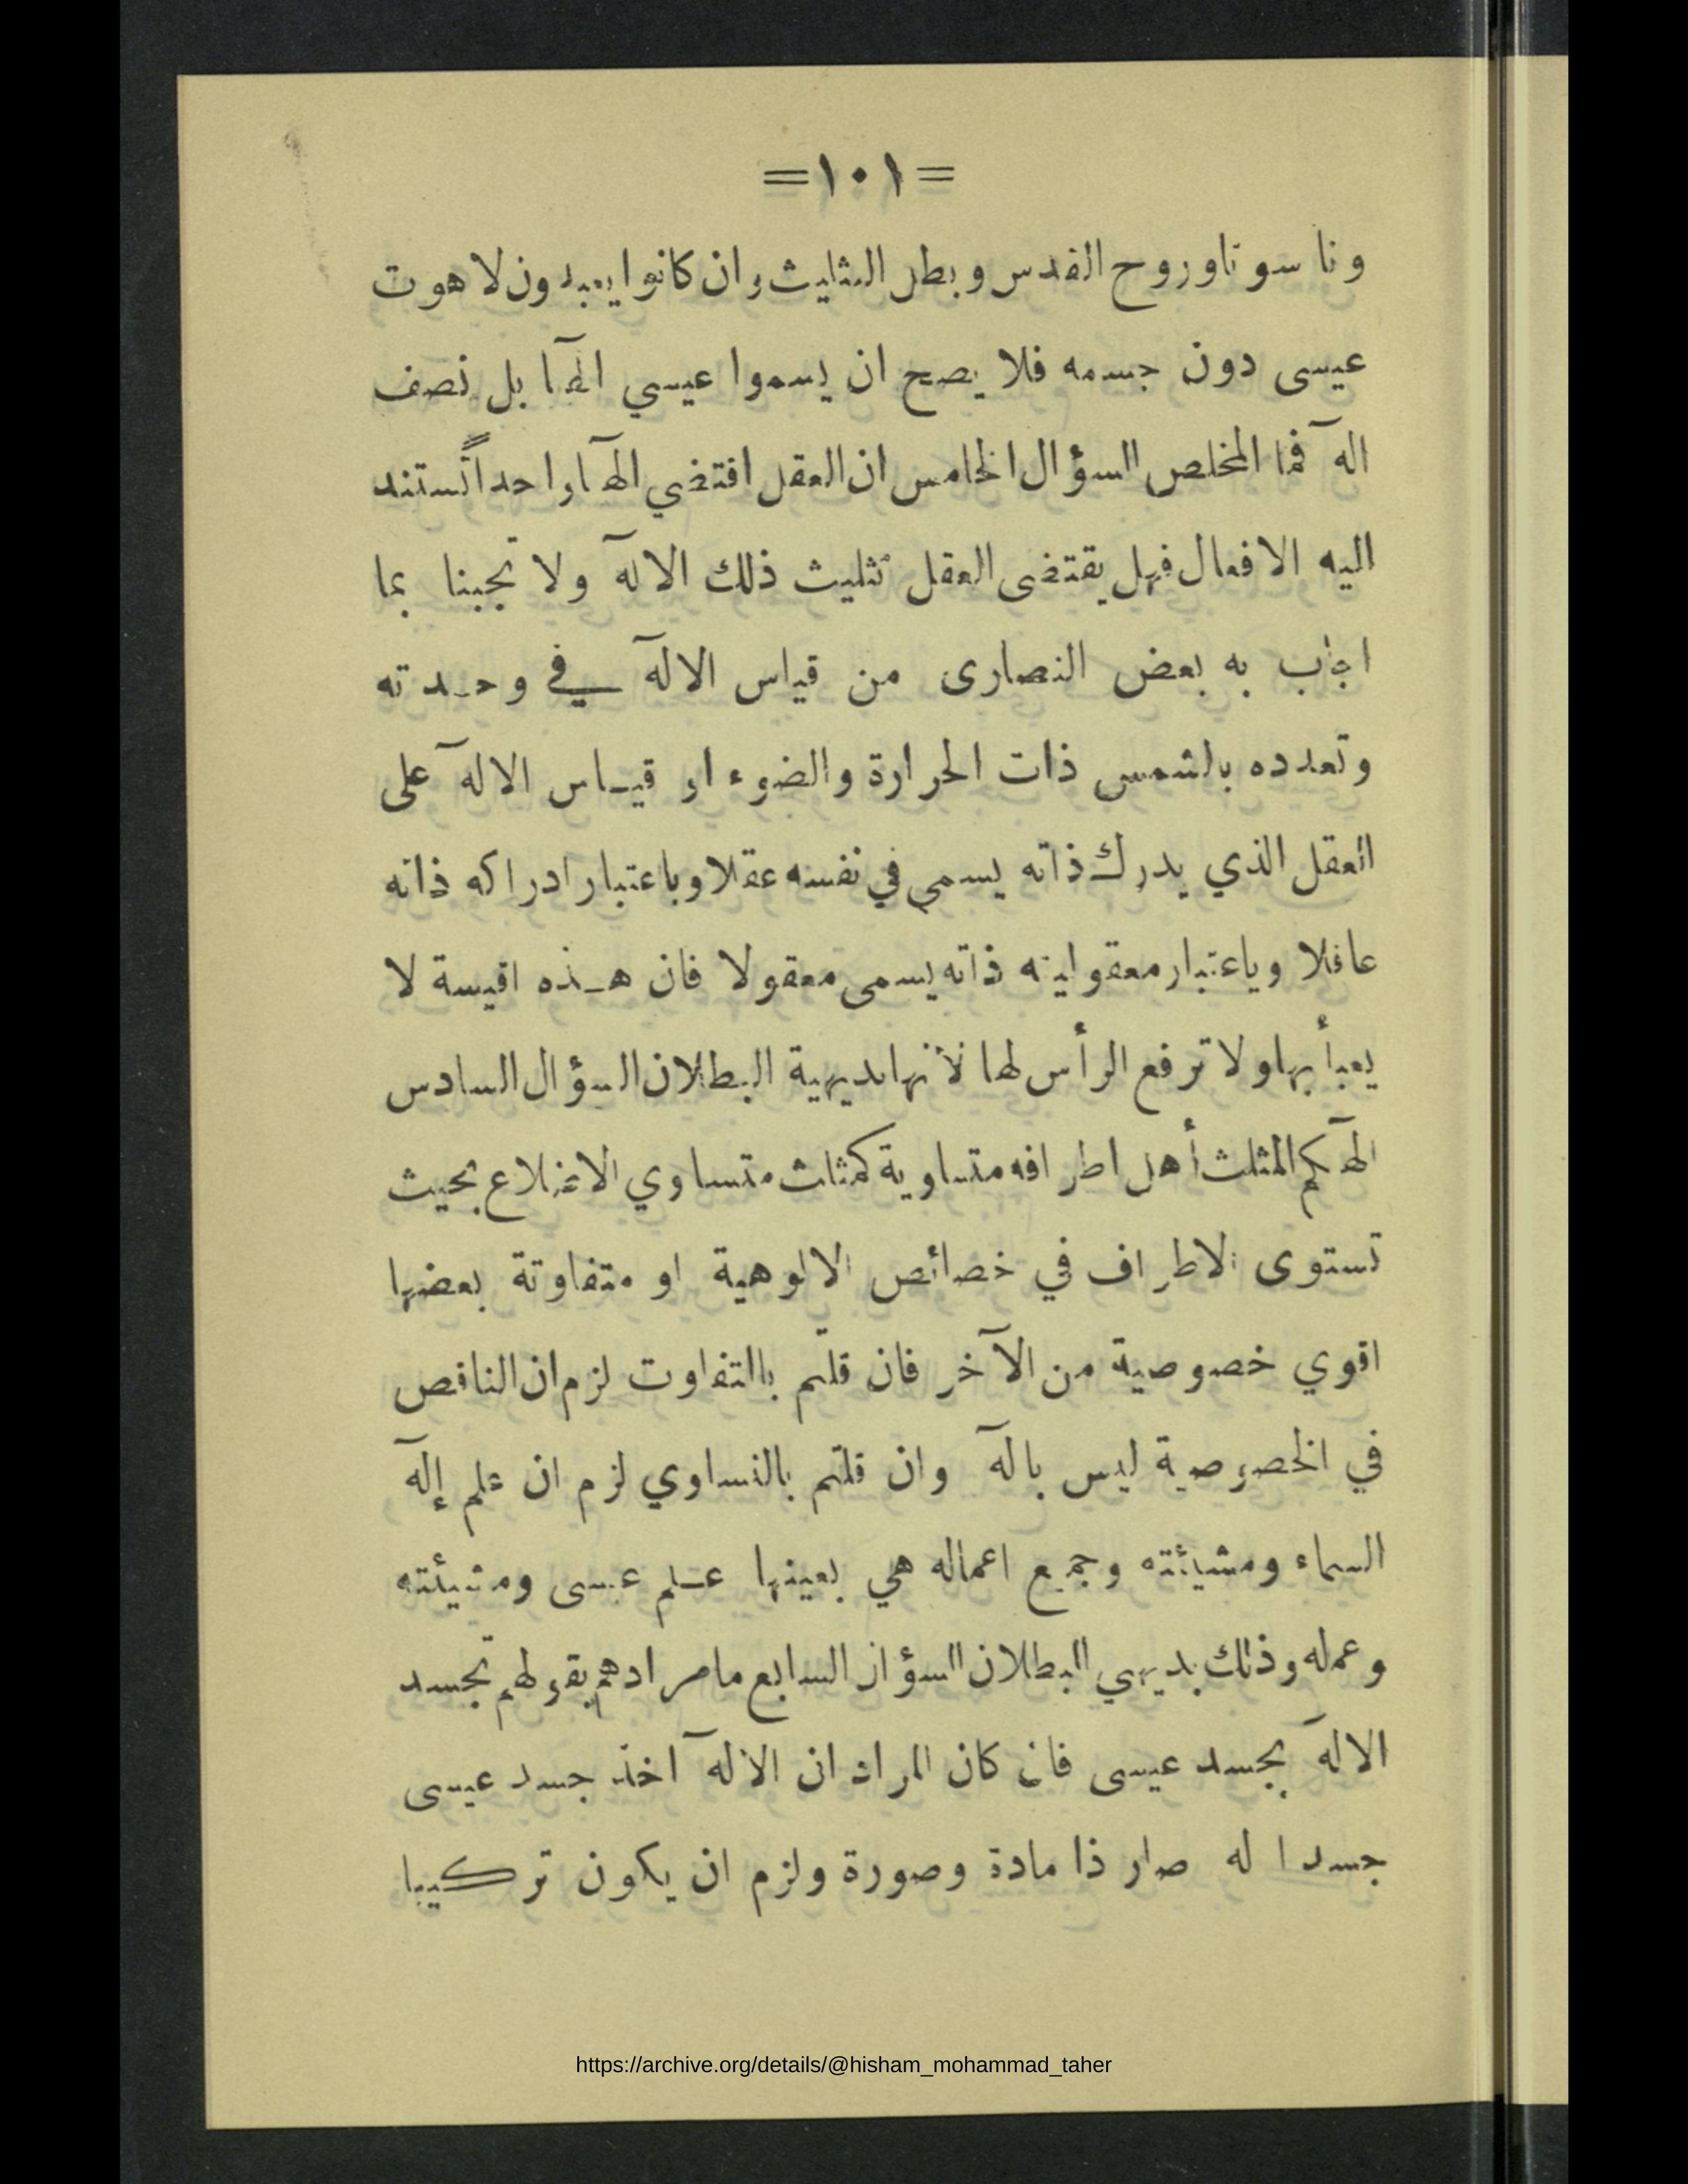 =١٠١=
وناسوتا وروح القدس وبطل التثليث وان كانوا يعبدون لاهوت
عيسى دون جسمه فلا يصح ان يسموا عيسي الهآ بل نصف
الهٓ فما المخلص السؤال الخامس ان العقل اقتضي الهآ واحداً تستند
اليه الافعال فهل يقتضى العقل تثليث ذلك الالهٓ ولا تجبنا بما
اجاب به بعض النصارى من قياس الالهٓ في وحدته
وتعدده بالشمس ذات الحرارة والضوء او قياس الالهٓ على
العقل الذي يدرك ذاته يسمى في نفسه عقلا وباعتبار ادراكه ذاته
عاقلا وباعتبار معقولية ذاته يسمى معقولا فان هذه اقيسة لا
يعبأ بها ولا ترفع الرأس لها لأنها بديهية البطلان السؤال السادس
الهٓكم المثلث أهل اطرافه متساوية كمثلث متساوي الاضلاع بحيث
تستوى الاطراف في خصائص الالوهية او متفاوتة بعضها
اقوي خصوصية من الآخر فان قلتم بالتفاوت لزم ان الناقص
في الخصوصية ليس بالهٓ وان قلتم بالتساوي لزم ان علم إلهٓ
السماء ومشيئته وجميع اعماله هي بعينها علم عيسى ومشيئته
وعمله وذلك بديهي البطلان السؤال السابع ما مرادهم بقولهم تجسد
الالهٓ بجسد عيسى فان كان المراد ان الالهٓ اخذ جسد عيسى
جسدا له صار ذا مادة وصورة ولزم ان يكون تركيبا
https://archive.org/details/@hisham_mohammad_taher